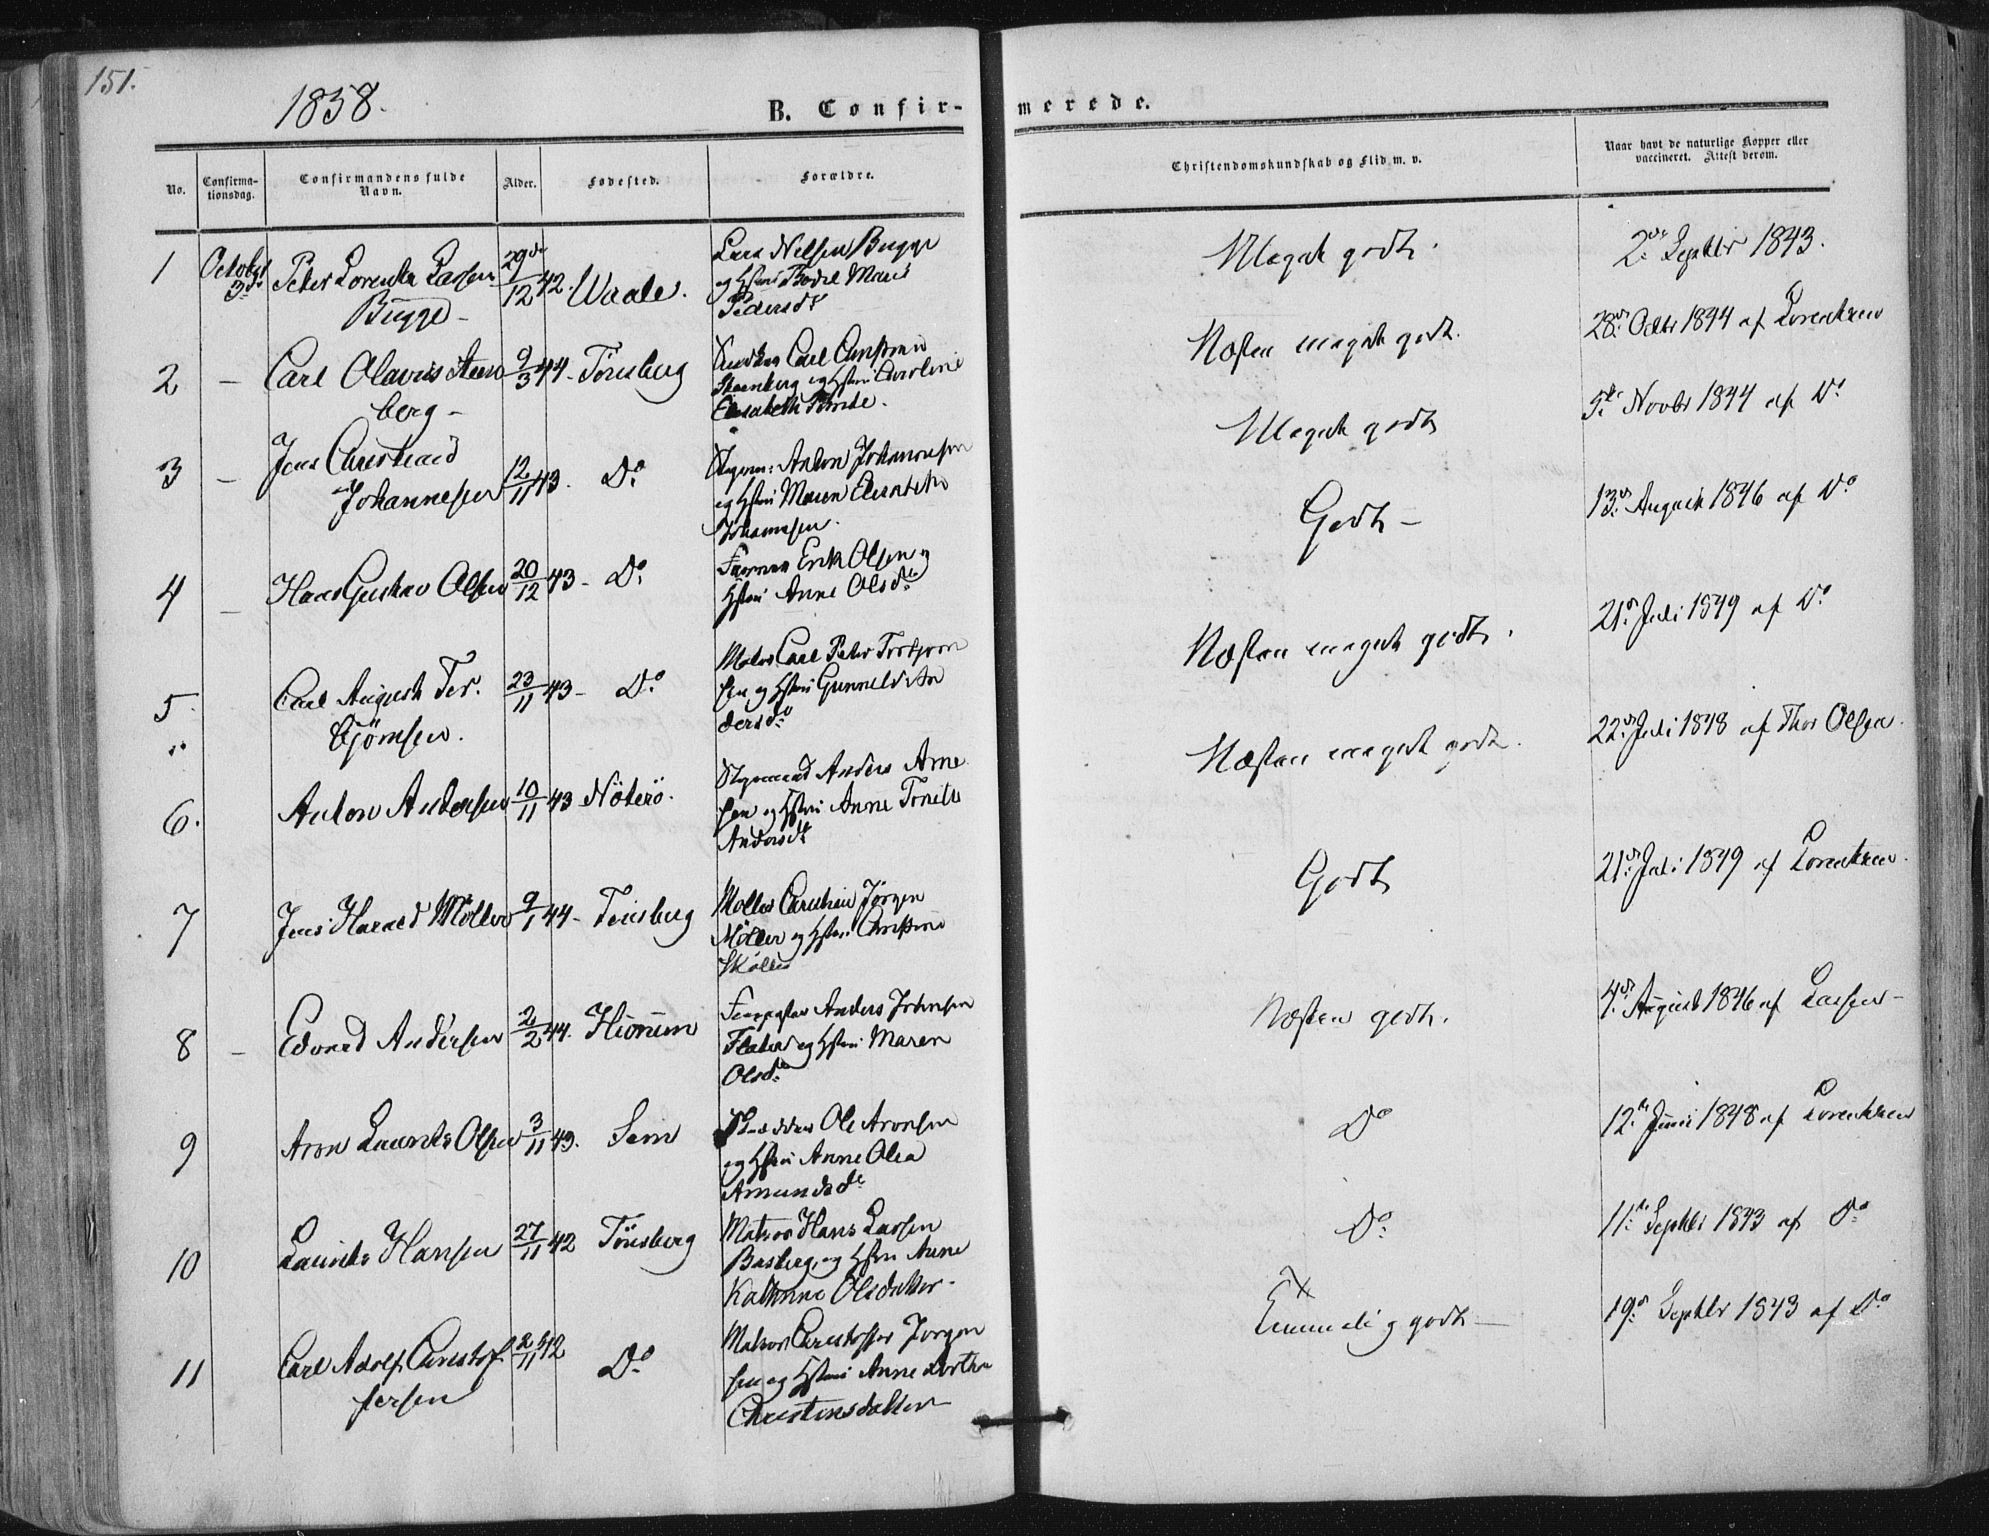 151.
1858.
B. Confir- merede.
No.
Confirma-
tionsdag.
Confirmandens fulde
Navn.
Alder.
Fødested.
Forældre.
Christendomskundskab og Flid m. v.
Naar havt de naturlige Kopper eller
vaccineret. Attest derom.
1
October
3d.
Peter Lorentz Larsen
Bugge -
29de
12 42.
Waale.
Lars Nelsen Bugge
og Hstru Bodil Marie
Pedersdt
Meget godt.
2de Septbr 1843.
2
-
Carl Olavus Steen
berg -
9
3 44-
Tönsberg
Carl Christian
Steenberg og Hstru Caroline
Elisabeth
Næsten meget godt.
28de Octbr 1844 af Lorentzen
3
-
Jens Christian
Johannesen
12
11 43.
Do
Styrm: Anton Johannesen
og Hstru Maren Elisabeth
Johannesen.
Meget godt
5te Novbr 1844 af Do
4
-
Hans Gustav Olsen
20
12 43-
Do
Erik Olsen og
Hstru Anne Olsdt
Godt -
13de August 1846 af Do
5.
Carl August Tor-
björnsen.
23
11 43-
Do
Carl Peter Torbjörn
sen og Hstru Gunnild An
dersdt
Næsten meget godt.
21de Juli 1849 af Do
6.
Anton Andersen
10
11 43
Nöterö.
Styrmand Anders Arne
sen og Hstru Anne Tonette
Andersdt
Næsten meget godt.
22de Juli 1848 af Thor Olsen.
7
Jens Harald Möller
9
1 44-
Tönsberg
Möller Christian Jörgen
Möller og Hstru Christine
Möller
Godt
21de Juli 1849 af Lorentzen.
8
-
Edvard Andersen
2
2 44.
Anders Johnsen
og Hstru Maren
Olsdt
Næsten godt.
4de August 1846 af Larsen -
9
Aron Lauritz Olsen
3
11 43.
Sem
Ole Aronsen
og Hstru Anne Olea
Amundsdt
Do
12te Juni 1848 af Lorentzen
10
Lauritz Hansen
27
11 42
Tönsberg
Matros Hans Larsen
Basberg, og Hstru Anne
Kathrine Olsdatter -
Do
11te Septbr 1843 af Do
11
Carl Adolf Christof-
fersen
11 42
Do
Matros Christoffer Jorgen
sen og Hstru Anne Dorthea
Christensdatter
Temmelig godt -
19de Septbr 1843 af Do